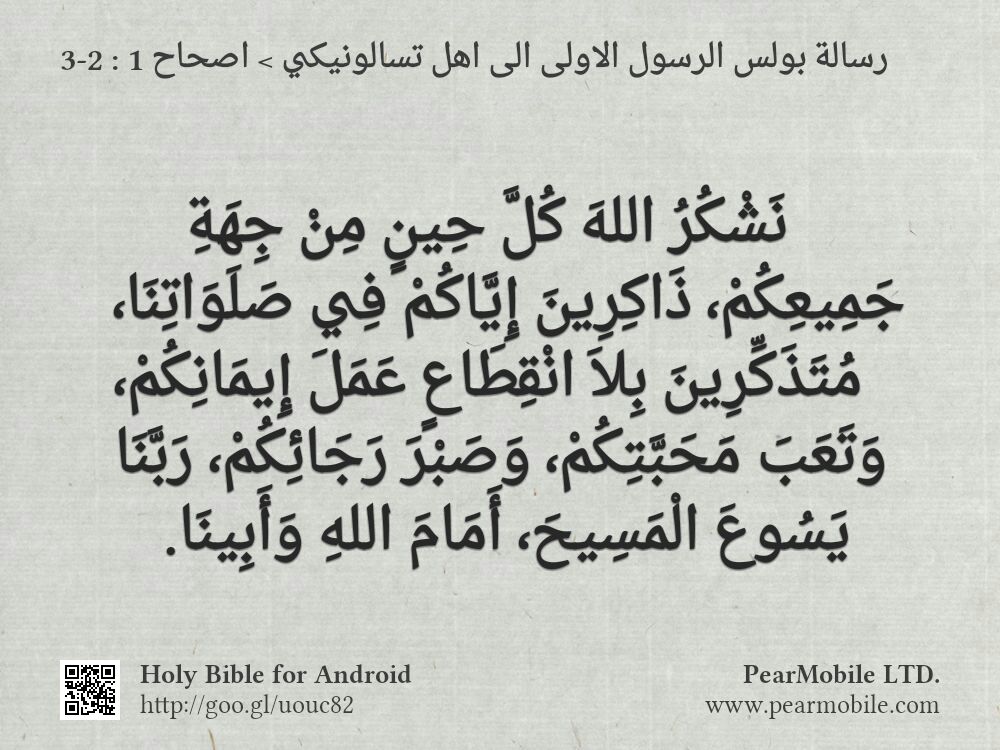 رسالة بولس الرسول الاولى الى اهل تسالونيكي > اصحاح 1 : 2-3
نَشْكُرُ اللهَ كُلَّ حِينٍ مِنْ جِهَةِ
جَمِيعِكُمْ، ذَاكِرِينَ إِيَّاكُمْ فِي صَلَوَاتِنَا،
مُتَذَكِّرِينَ بِلاَ انْقِطَاعٍ عَمَلَ إِيمَانِكُمْ،
وَتَعَبَ مَحَبَّتِكُمْ، وَصَبْرَ رَجَائِكُمْ، رَبَّنَا
يَسُوعَ الْمَسِيحَ، أَمَامَ اللهِ وَأَبِينَا.
Holy Bible for Android
http://goo.gl/uouc82
PearMobile LTD.
www.pearmobile.com